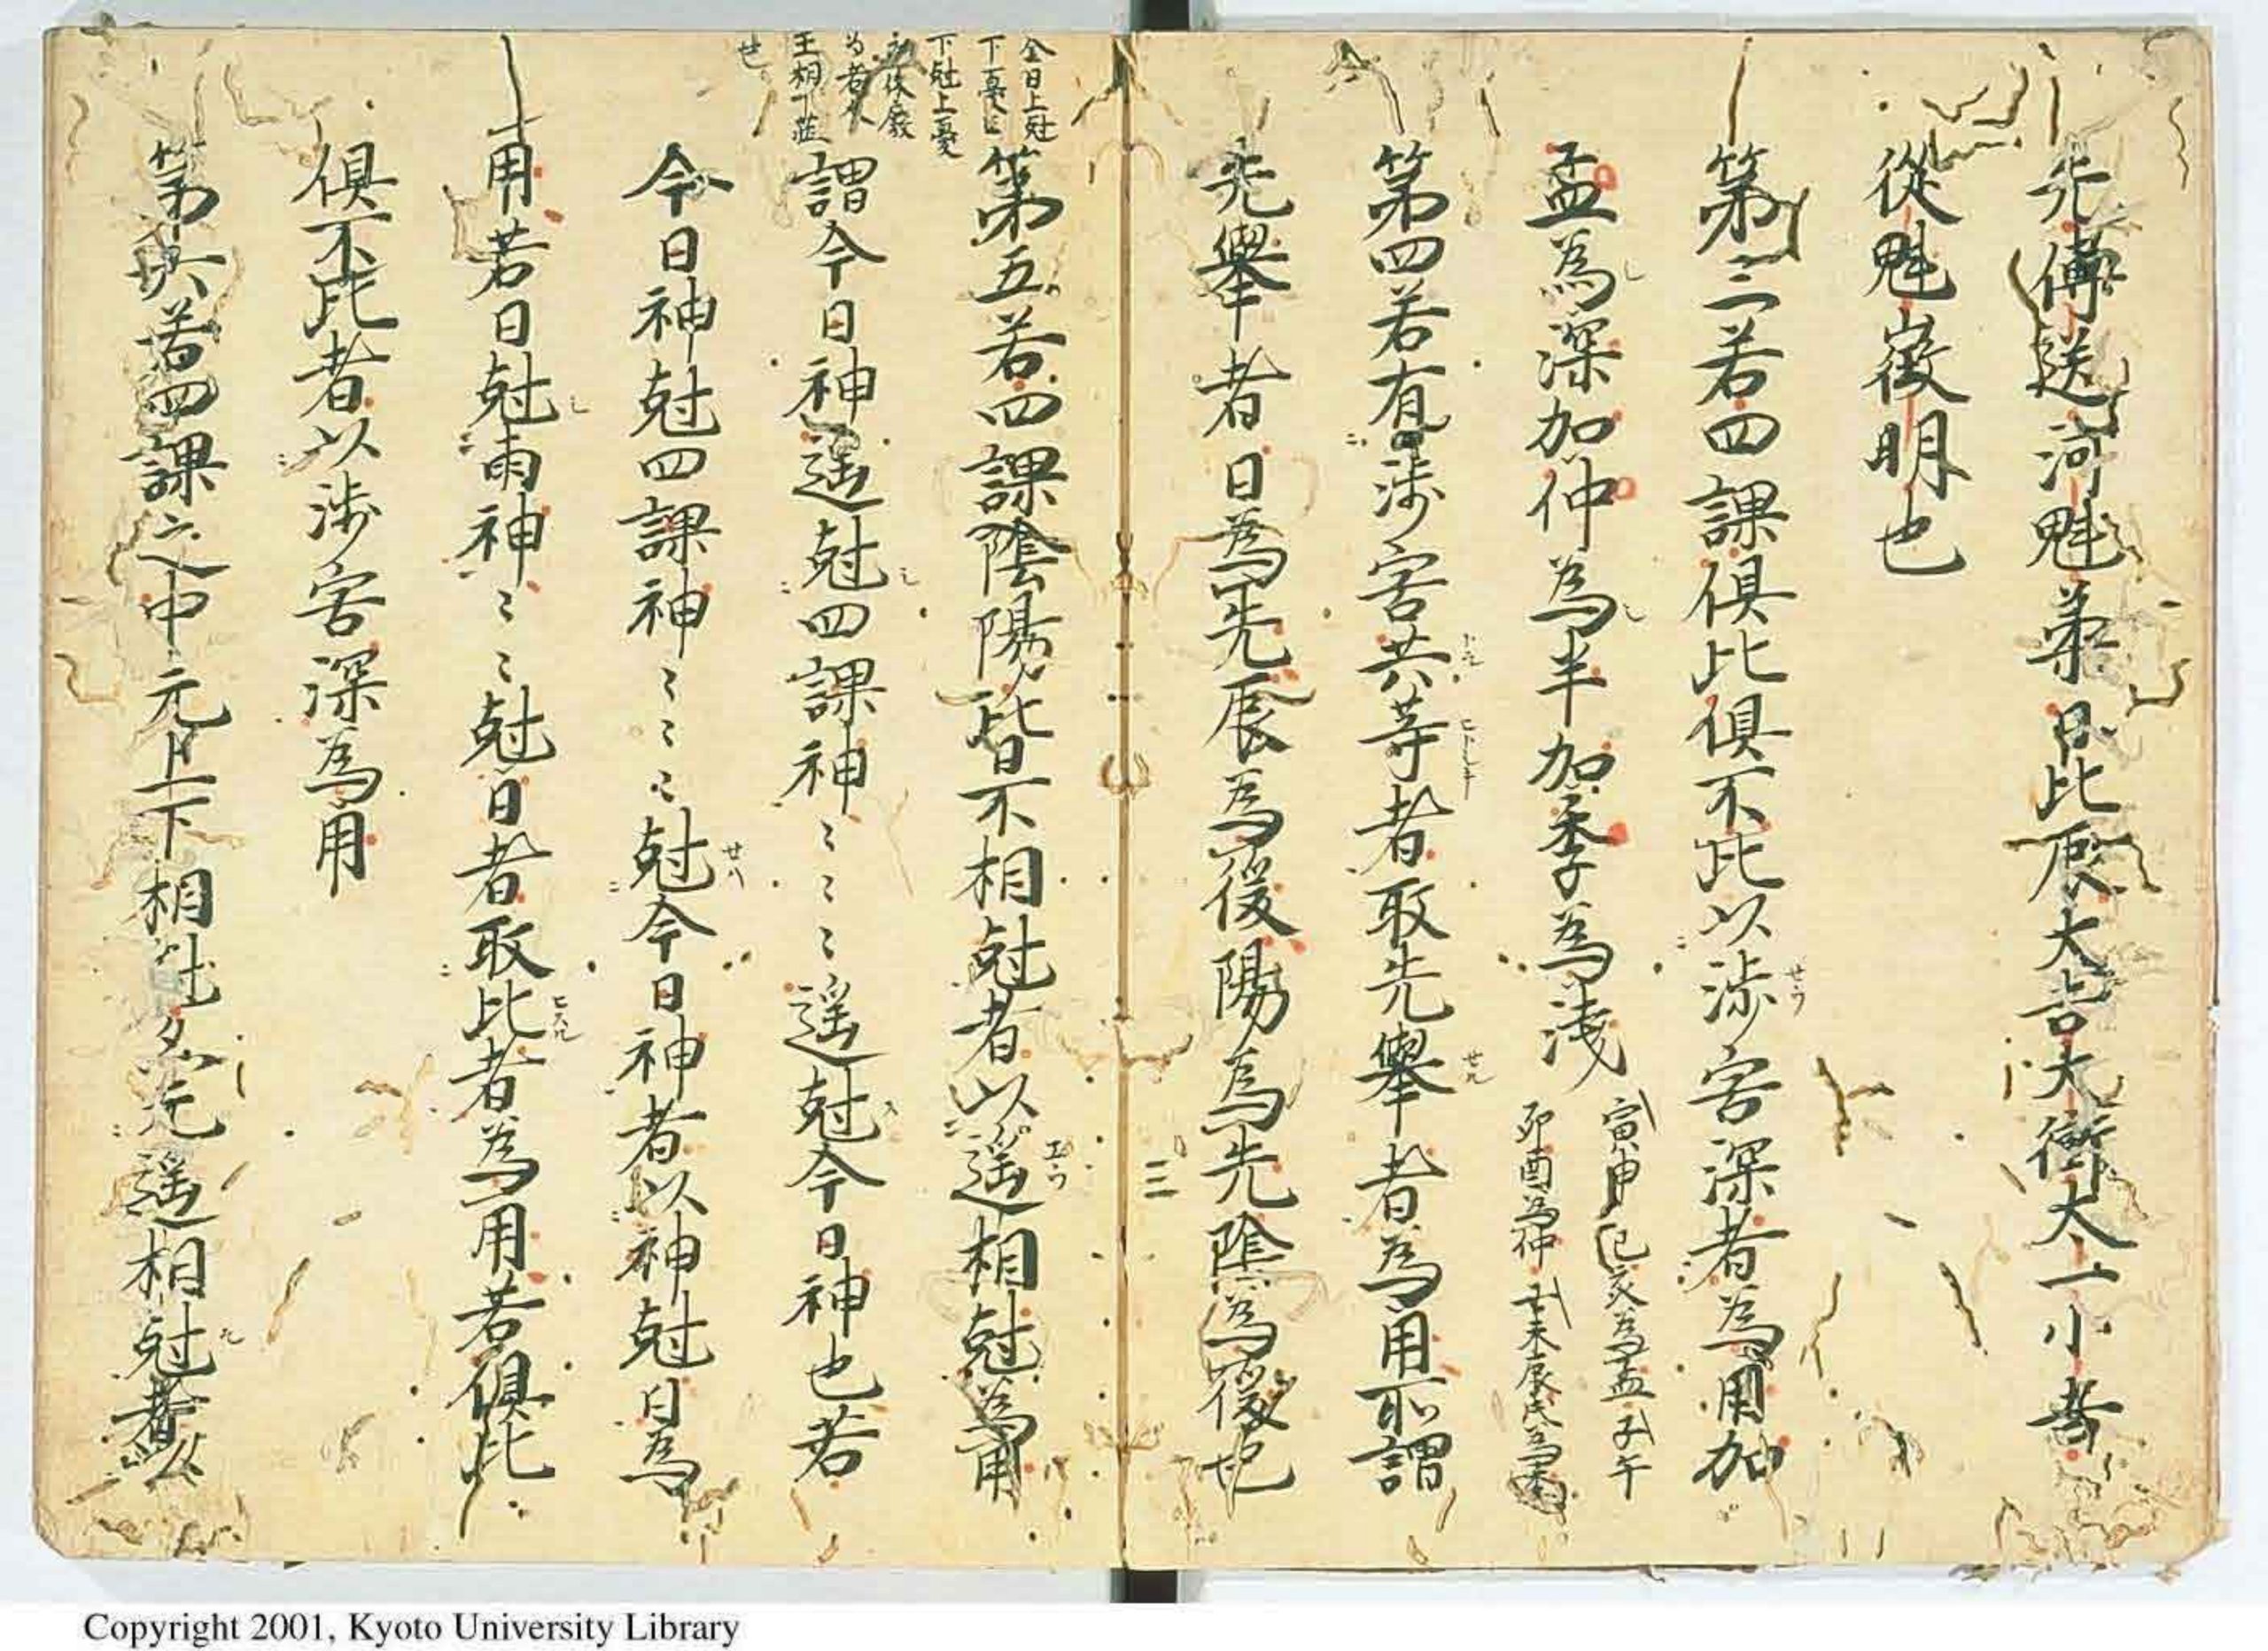 先傳送河魁苐日比辰大吉大衝太一小吉
從魁徴明也
第三若四課倶比倶不比以渉害深者為用加
孟為深加仲為半加季為淺
寅申巳亥為孟子午
卯酉為仲丑未辰戌為季
第四若有渉害共等者取先舉者為用所謂
先舉者日為先辰為後陽為先陰為後也
三
金日上尅
下憂
下尅上憂
王相
也
第五若四課陰陽皆不相尅者以遥相尅為用
謂今日神遥尅四課神〻〻〻遥尅今日神也若
今日神尅四課神〻〻〻尅今日神者以神尅日為
用若日尅兩神〻〻尅日者取比者為用若倶比
倶不比者以渉害深為用
第六若四課之中无上下相尅又无遥相尅者以
Copyright 2001, Kyoto University Library